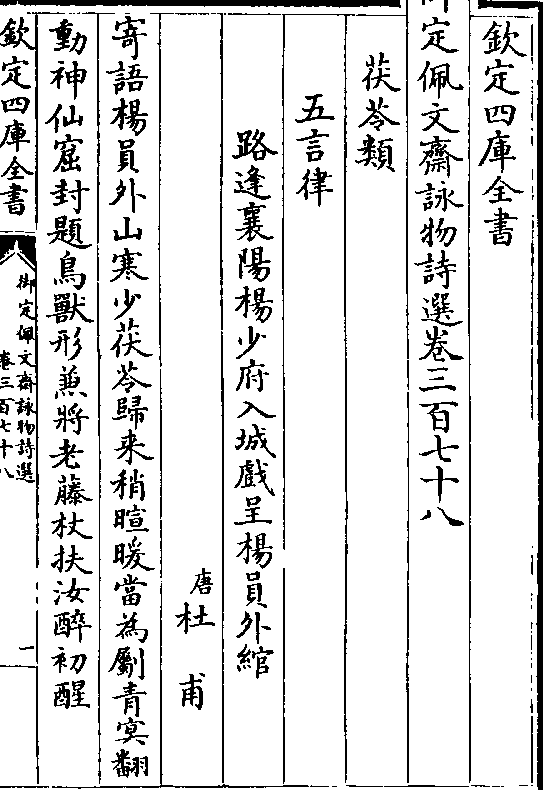 欽定四庫全書
御定佩文齋詠物詩選卷三百七十八
茯苓類
五言律
路逢襄陽楊少府入城戲呈楊員外綰
唐杜甫
寄語楊員外山寒少茯苓歸来稍暄暖當為劚青㝠翻
動神仙窟封題鳥獸形兼將老藤杖扶汝醉初醒
欽定四庫全書
御定佩文齋詠物詩選
卷三百七十八
一